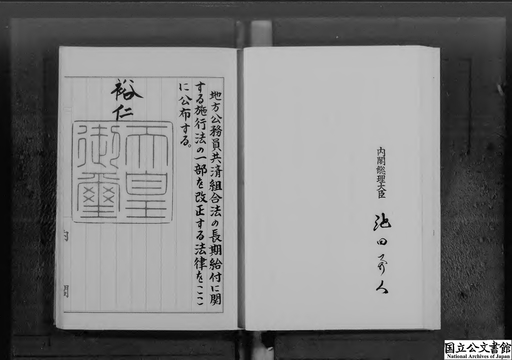 内閣総理大臣
池田勇人
地方公務員共済組合法の長期給付に関
する施行法の一部を改正する法律をここ
に公布する。
裕仁
天皇
御璽
内
閣
国立公文書館
National Archives of Japan